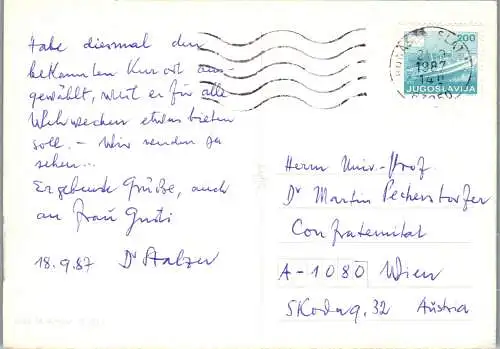 Habe diesmal den
bekannten Kurort aus-
gewählt, weil er für alle
Wehwechen etwas bieten
soll. – Wir werden ja
sehen...
Ergebende Grüße, auch
an Frau Gusti
18.9.87 Dr Stalzer
200
1987
JUGOSLAVIJA
Herrn Univ.-Prof.
Dr Martin Pechersdorfer
Confraternität
A-1080 Wien
Skodag. 32 Austria